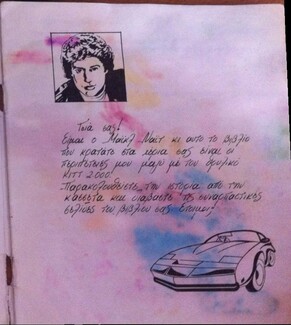 Γειά σας!
Είμαι ο Μάικλ Νάιτ κι αυτό το βιβλίο
που κρατάτε στα χέρια σας είναι οι
περιπέτειές μου μαζί με τον θρυλικό
ΚΙΤΤ 2000!
Παρακολουθείστε την ιστορία από την
κασέττα και διαβάστε τις συναρπαστικές
σελίδες του βιβλίου σας. Έτοιμοι;